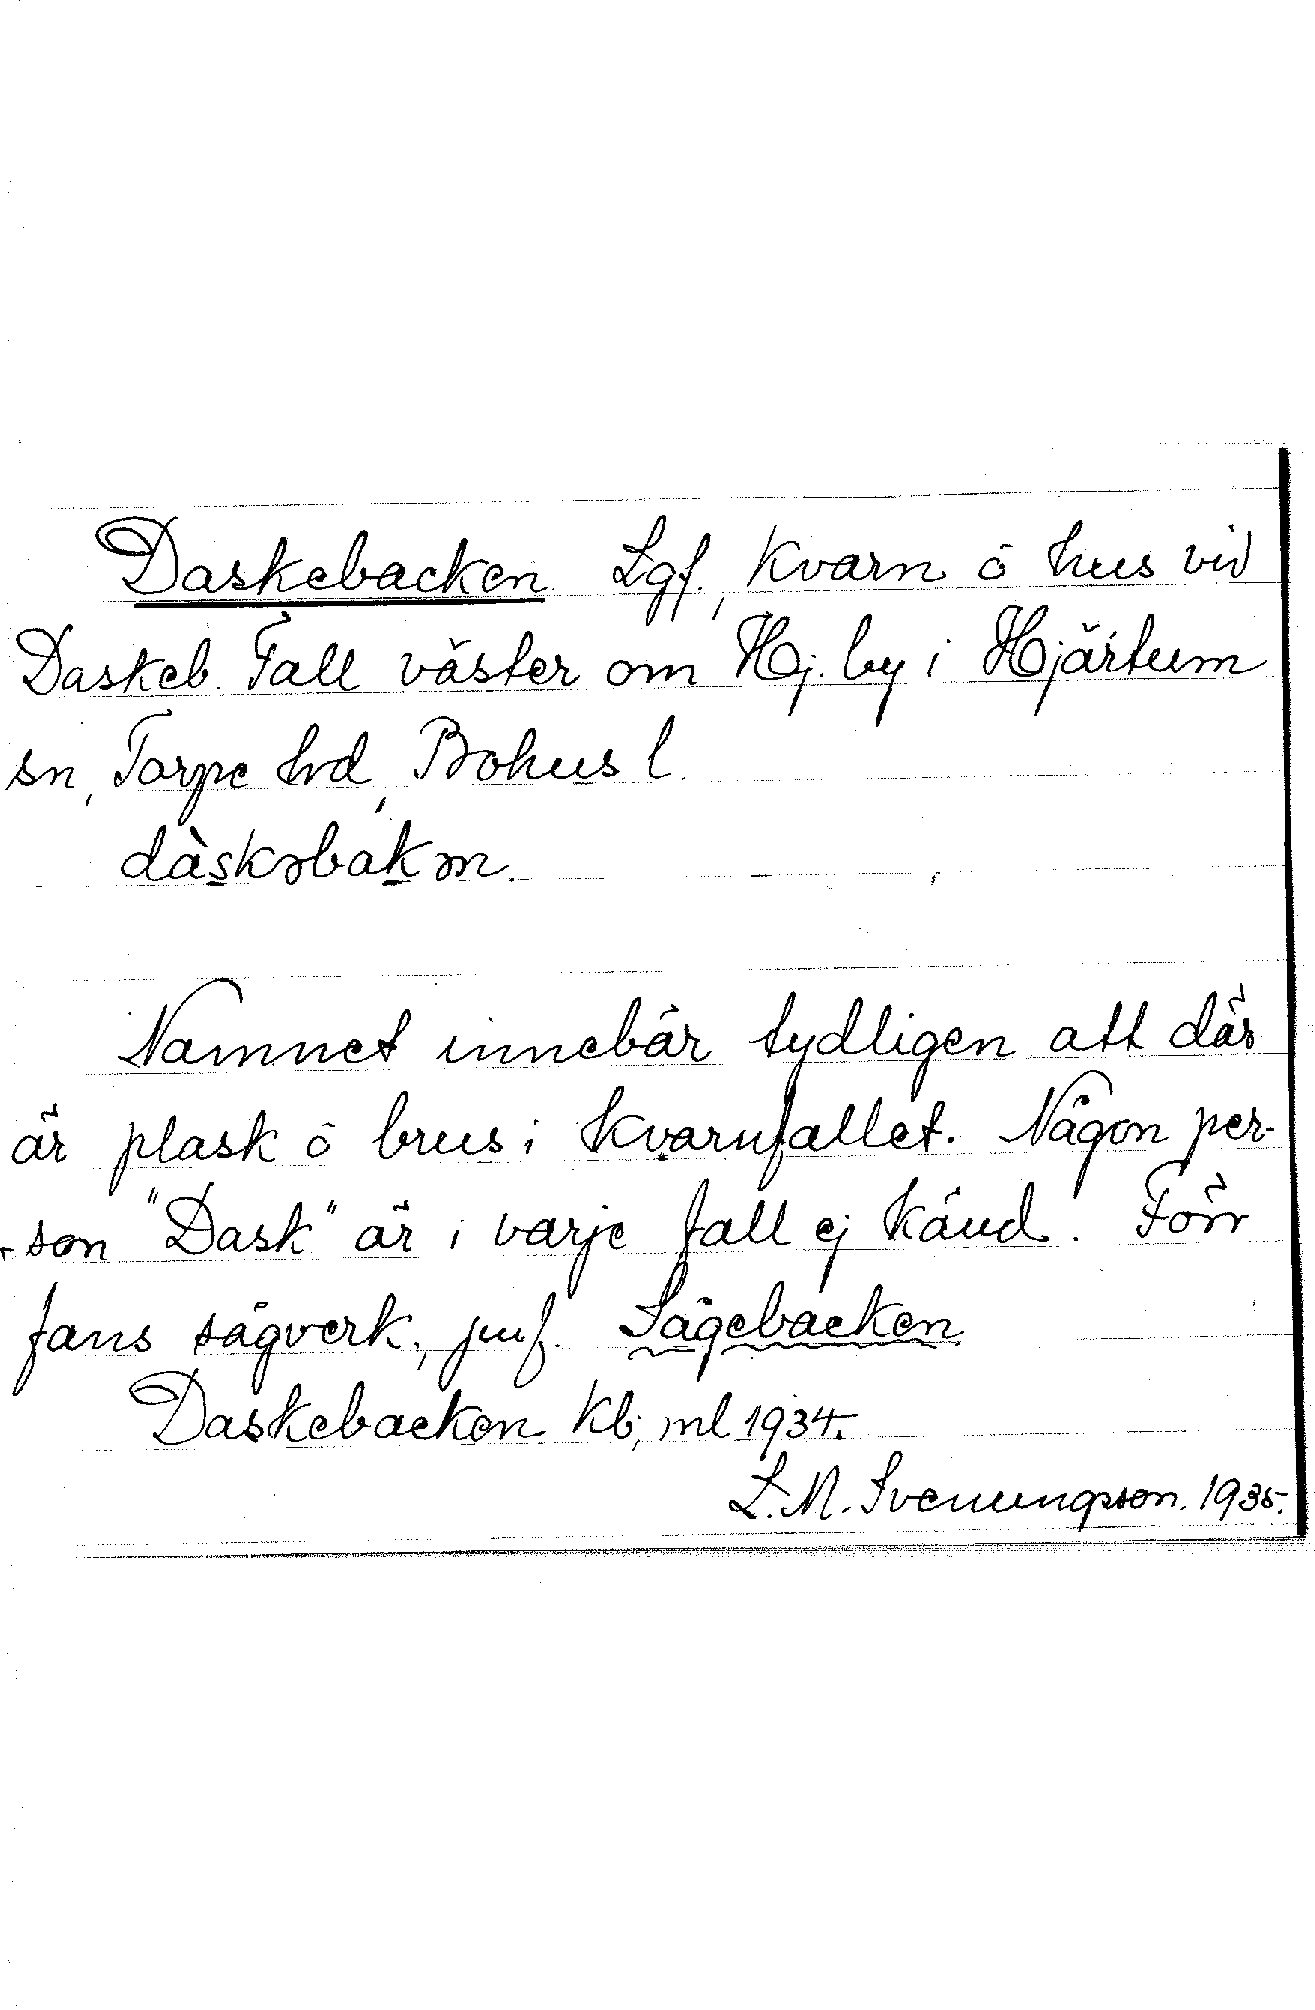 Daskebacken Lgf., Kvarn ö hus vid
Daskeb. Fall väster om Hj. by i Hjärtum
sn, Torpe hd, Bohus l.
dàskəbakən.
Namnet innebär tydligen att där
är plask ö brus i kvarnfallet. Någon per-
-son "Dask" är i varje fall ej känd. Förr
fans sågverk, jmf. Sågebacken
Daskebacken Kb; ml 1934.
L. M. Svenungsson. 1935.